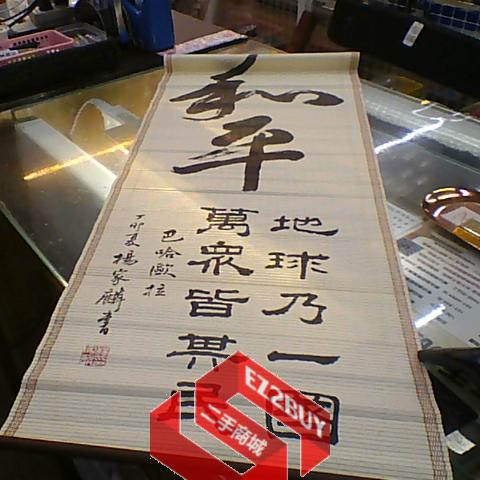 和平
地球乃一國
萬眾皆其民
巴哈歐拉
丁卯夏楊家麟書
EZ2BUY
二手商城